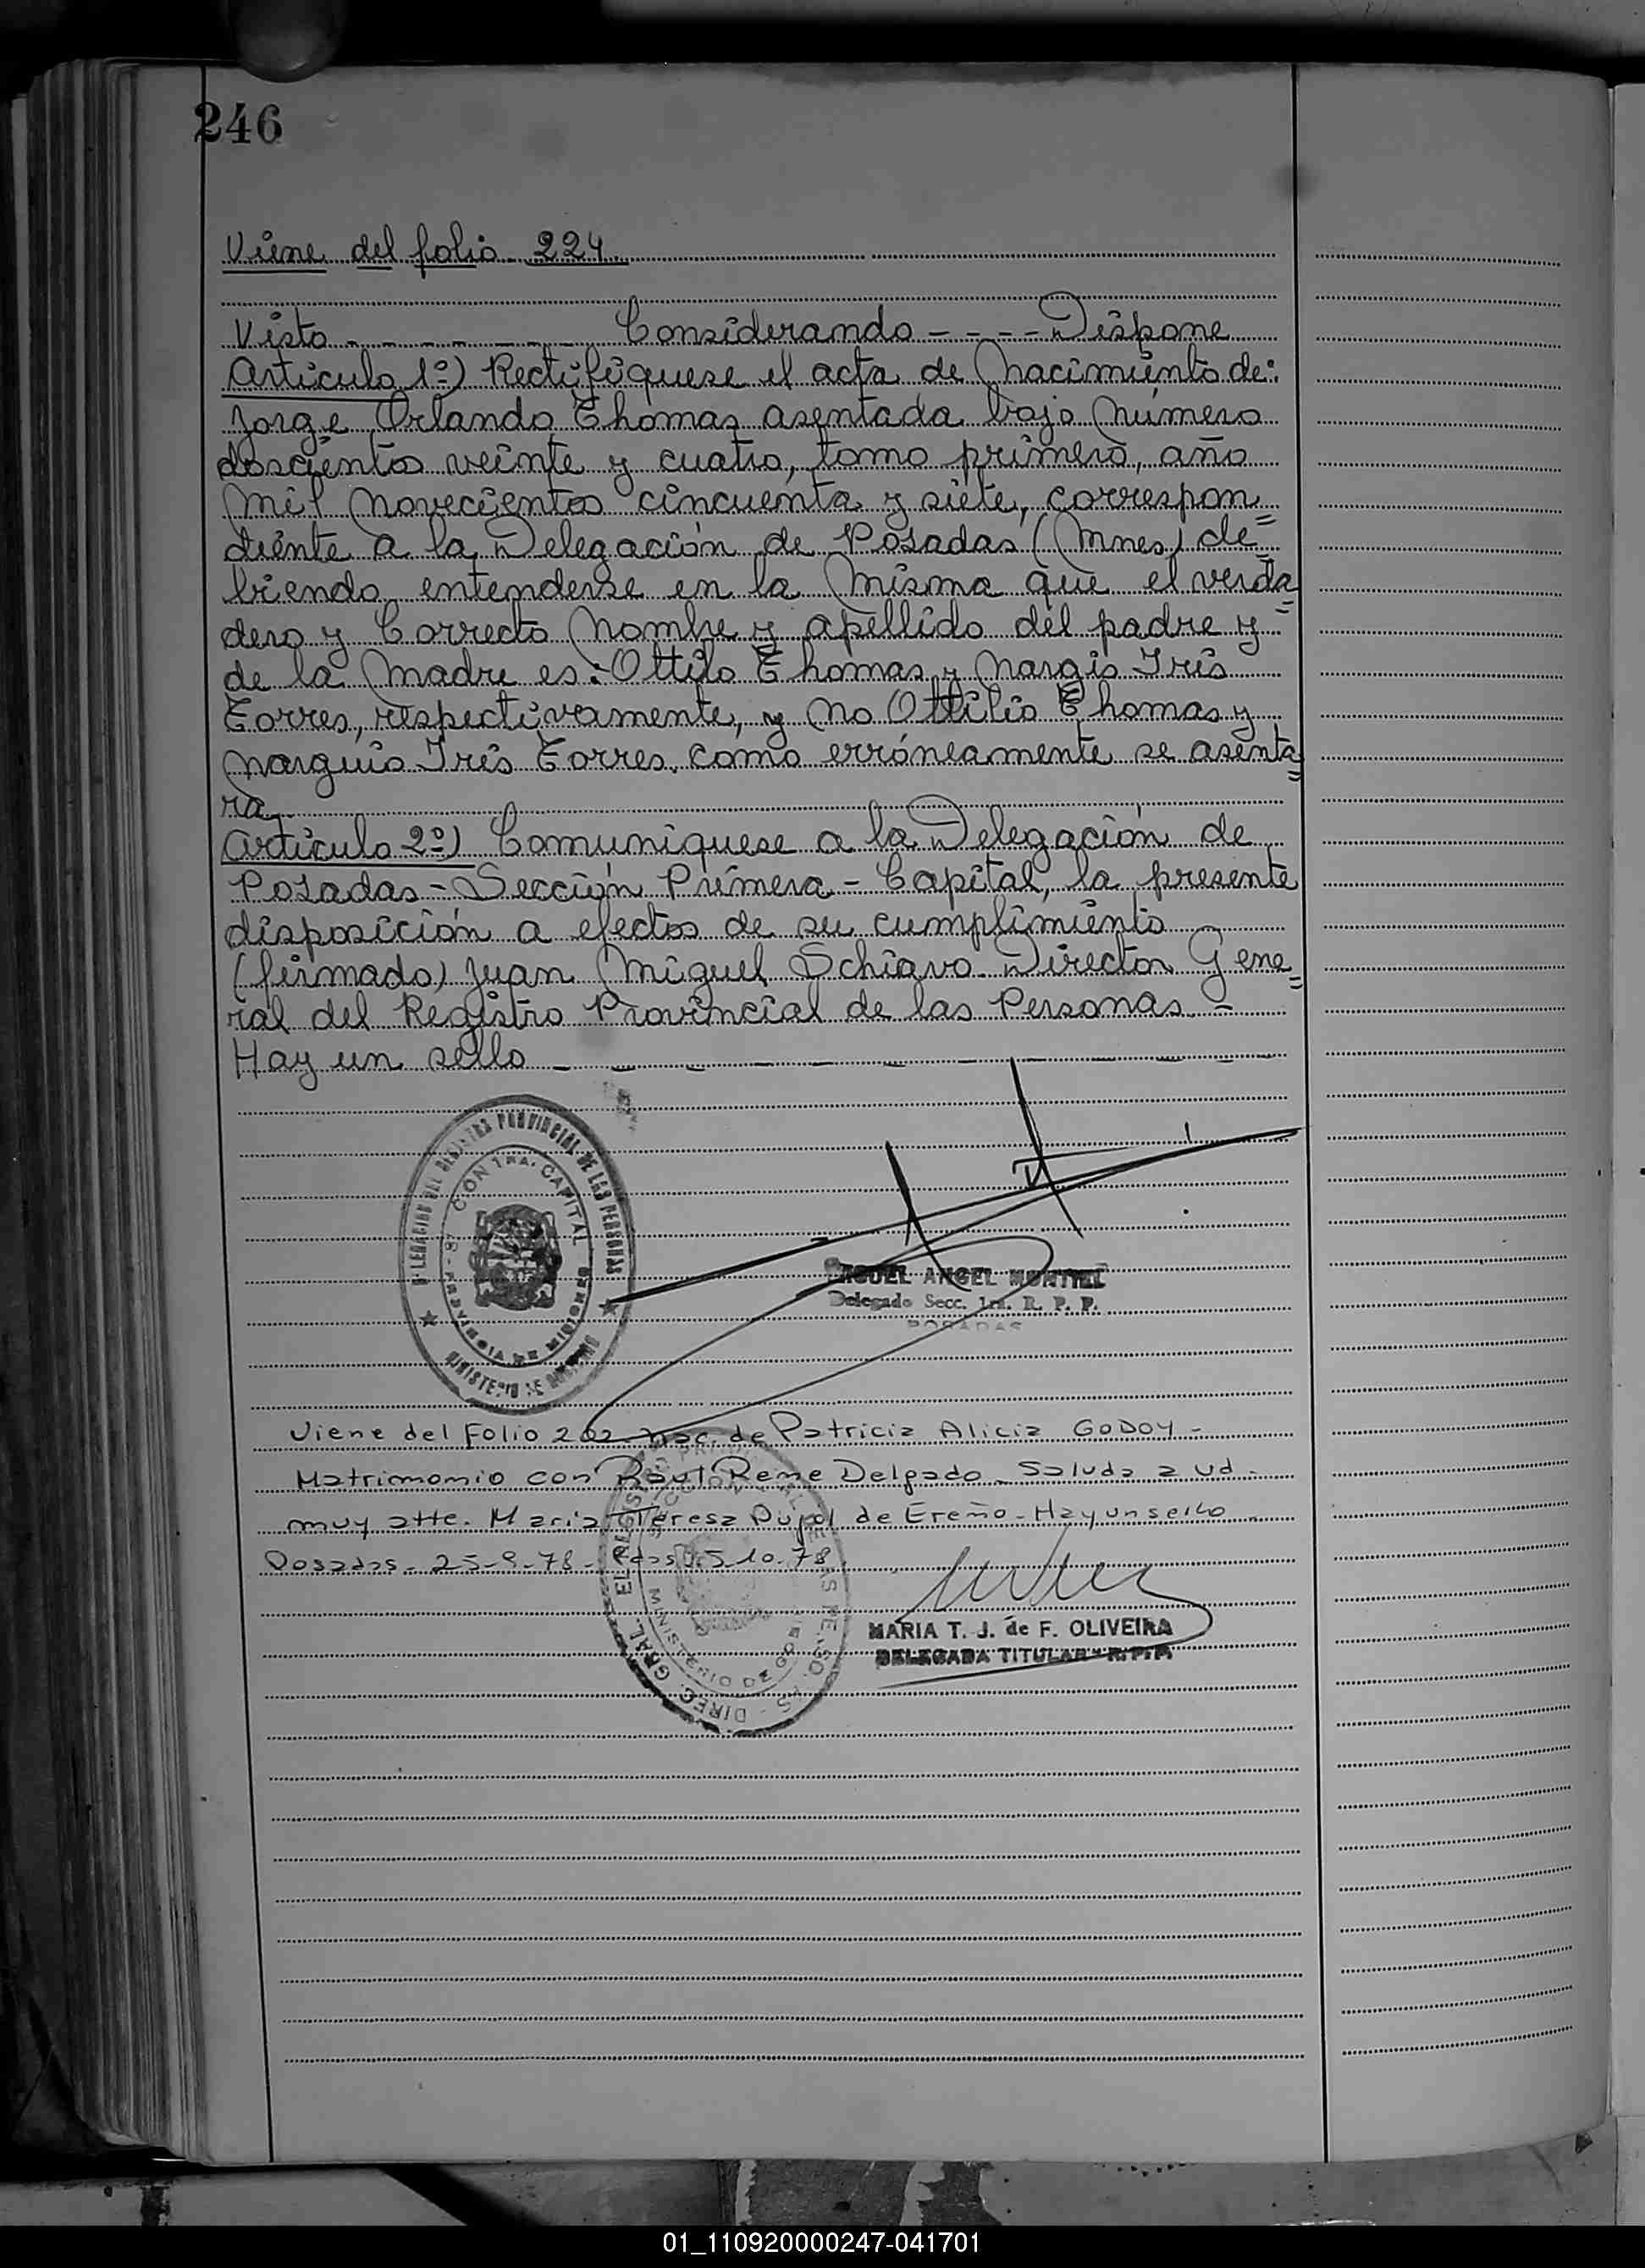 246
Viene del folio 224
Visto - - - - - - - Considerando - - - - Dispone
Artículo 1º) Rectifíquese el acta de Nacimiento de:
Jorge Orlando Thomas asentada bajo Número
doscientos veinte y cuatro, tomo primero, año
Mil Novecientos cincuenta y siete, correspon
diente a la Delegación de Posadas (Mnes) de=
biendo entenderse en la Misma que el verda=
dero y Correcto Nombre y apellido del padre y=
de la Madre es: Ottilo Thomas y Nargis Iris
Torres, respectivamente, y No Ottilio Thomas y
Narguis Iris Torres, como erróneamente se asenta=
ra
Artículo 2º) Comuníquese a la Delegación de
Posadas - Sección Primera - Capital, la presente
disposición a efectos de su cumplimiento
(firmado) Juan Miguel Schiavo - Director Gene=
ral del Registro Provincial de las Personas. -
Hay un sello
DELEGACION DEL REGISTRO PROVINCIAL DE LAS PERSONAS
CION 1RA. CAPITAL
PROVINCIA DE MISIONES
MINISTERIO DE GOBIERNO
MIGUEL ANGEL MONTIEL
Delegado Secc. 1ra. R. P. P.
POSADAS
Viene del Folio 202 Nac. de Patricia Alicia GODOY -
Matrimonio con Raul Rene Delgado - Saluda a Ud.
muy atte. Maria Teresa Pujol de Ereño - Hay un sello
Posadas - 25-9-78 - Pdas 25-10-78
MARIA T. J. de F. OLIVEIRA
DELEGADA TITULAR - R.P.P.
DIREC. GRAL.
MINISTERIO DE GO
01_110920000247-041701